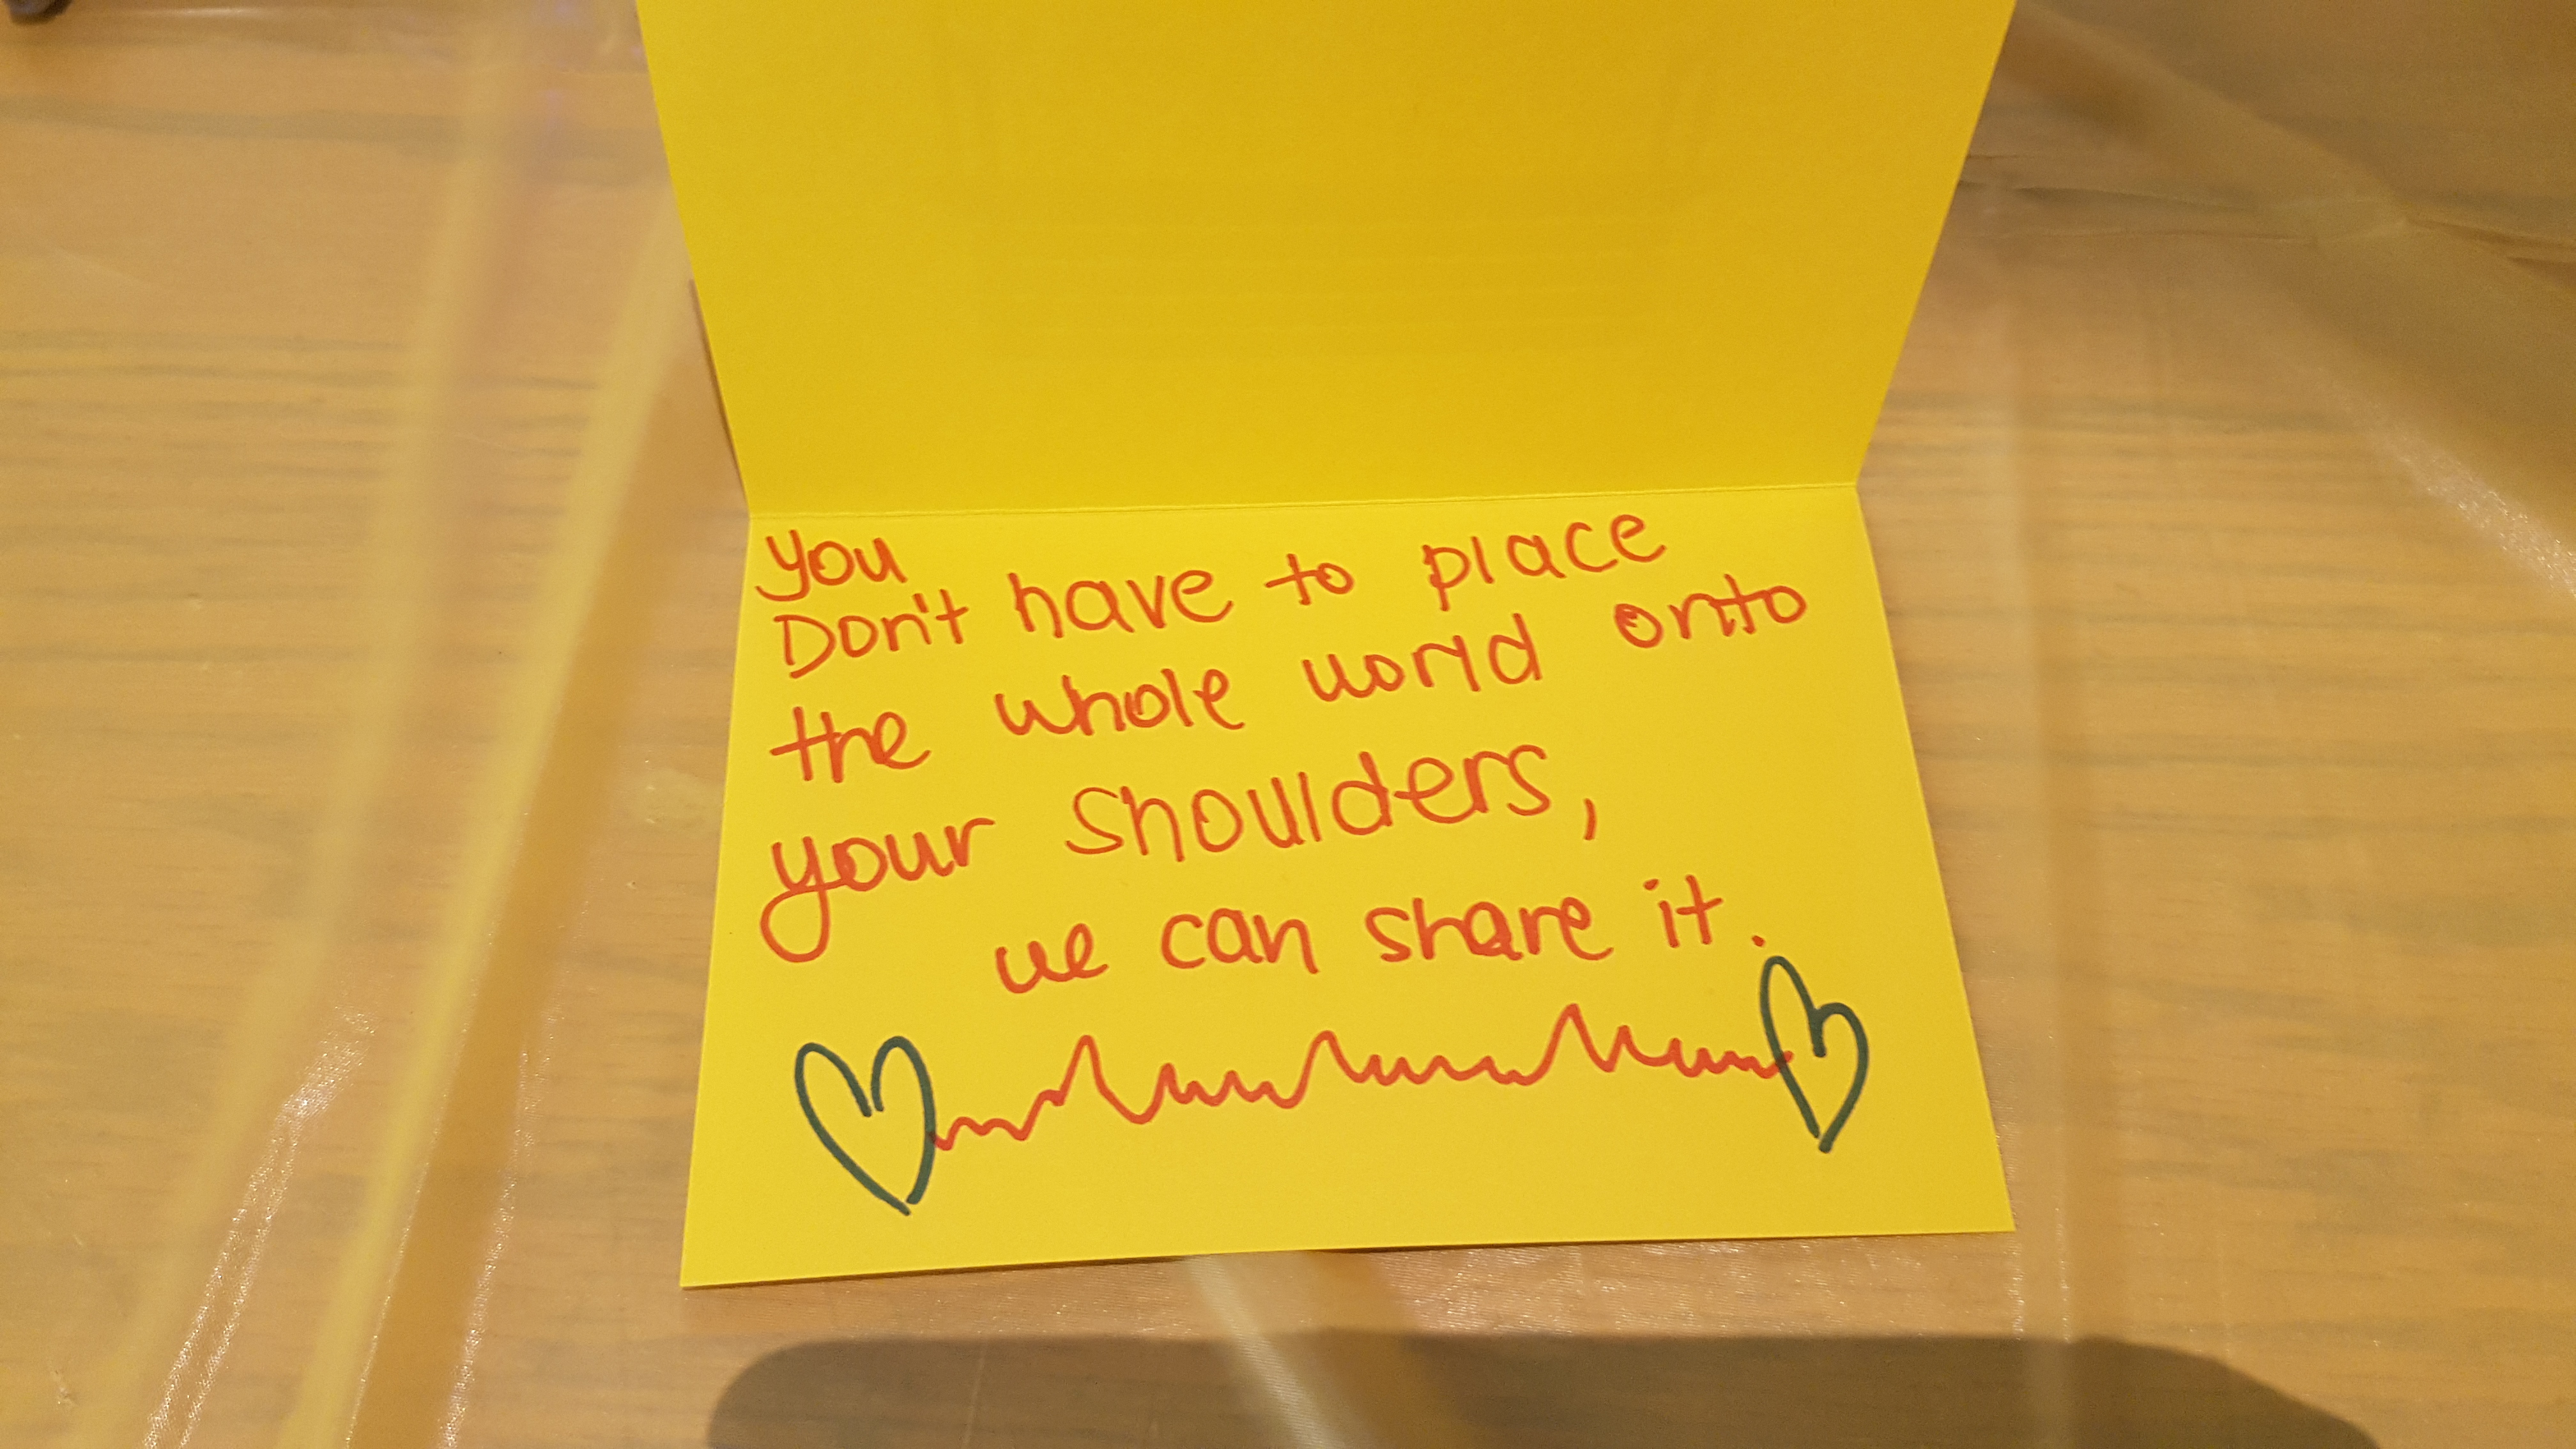 you
Don't have to place
the whole world onto
your shoulders,
we can share it.